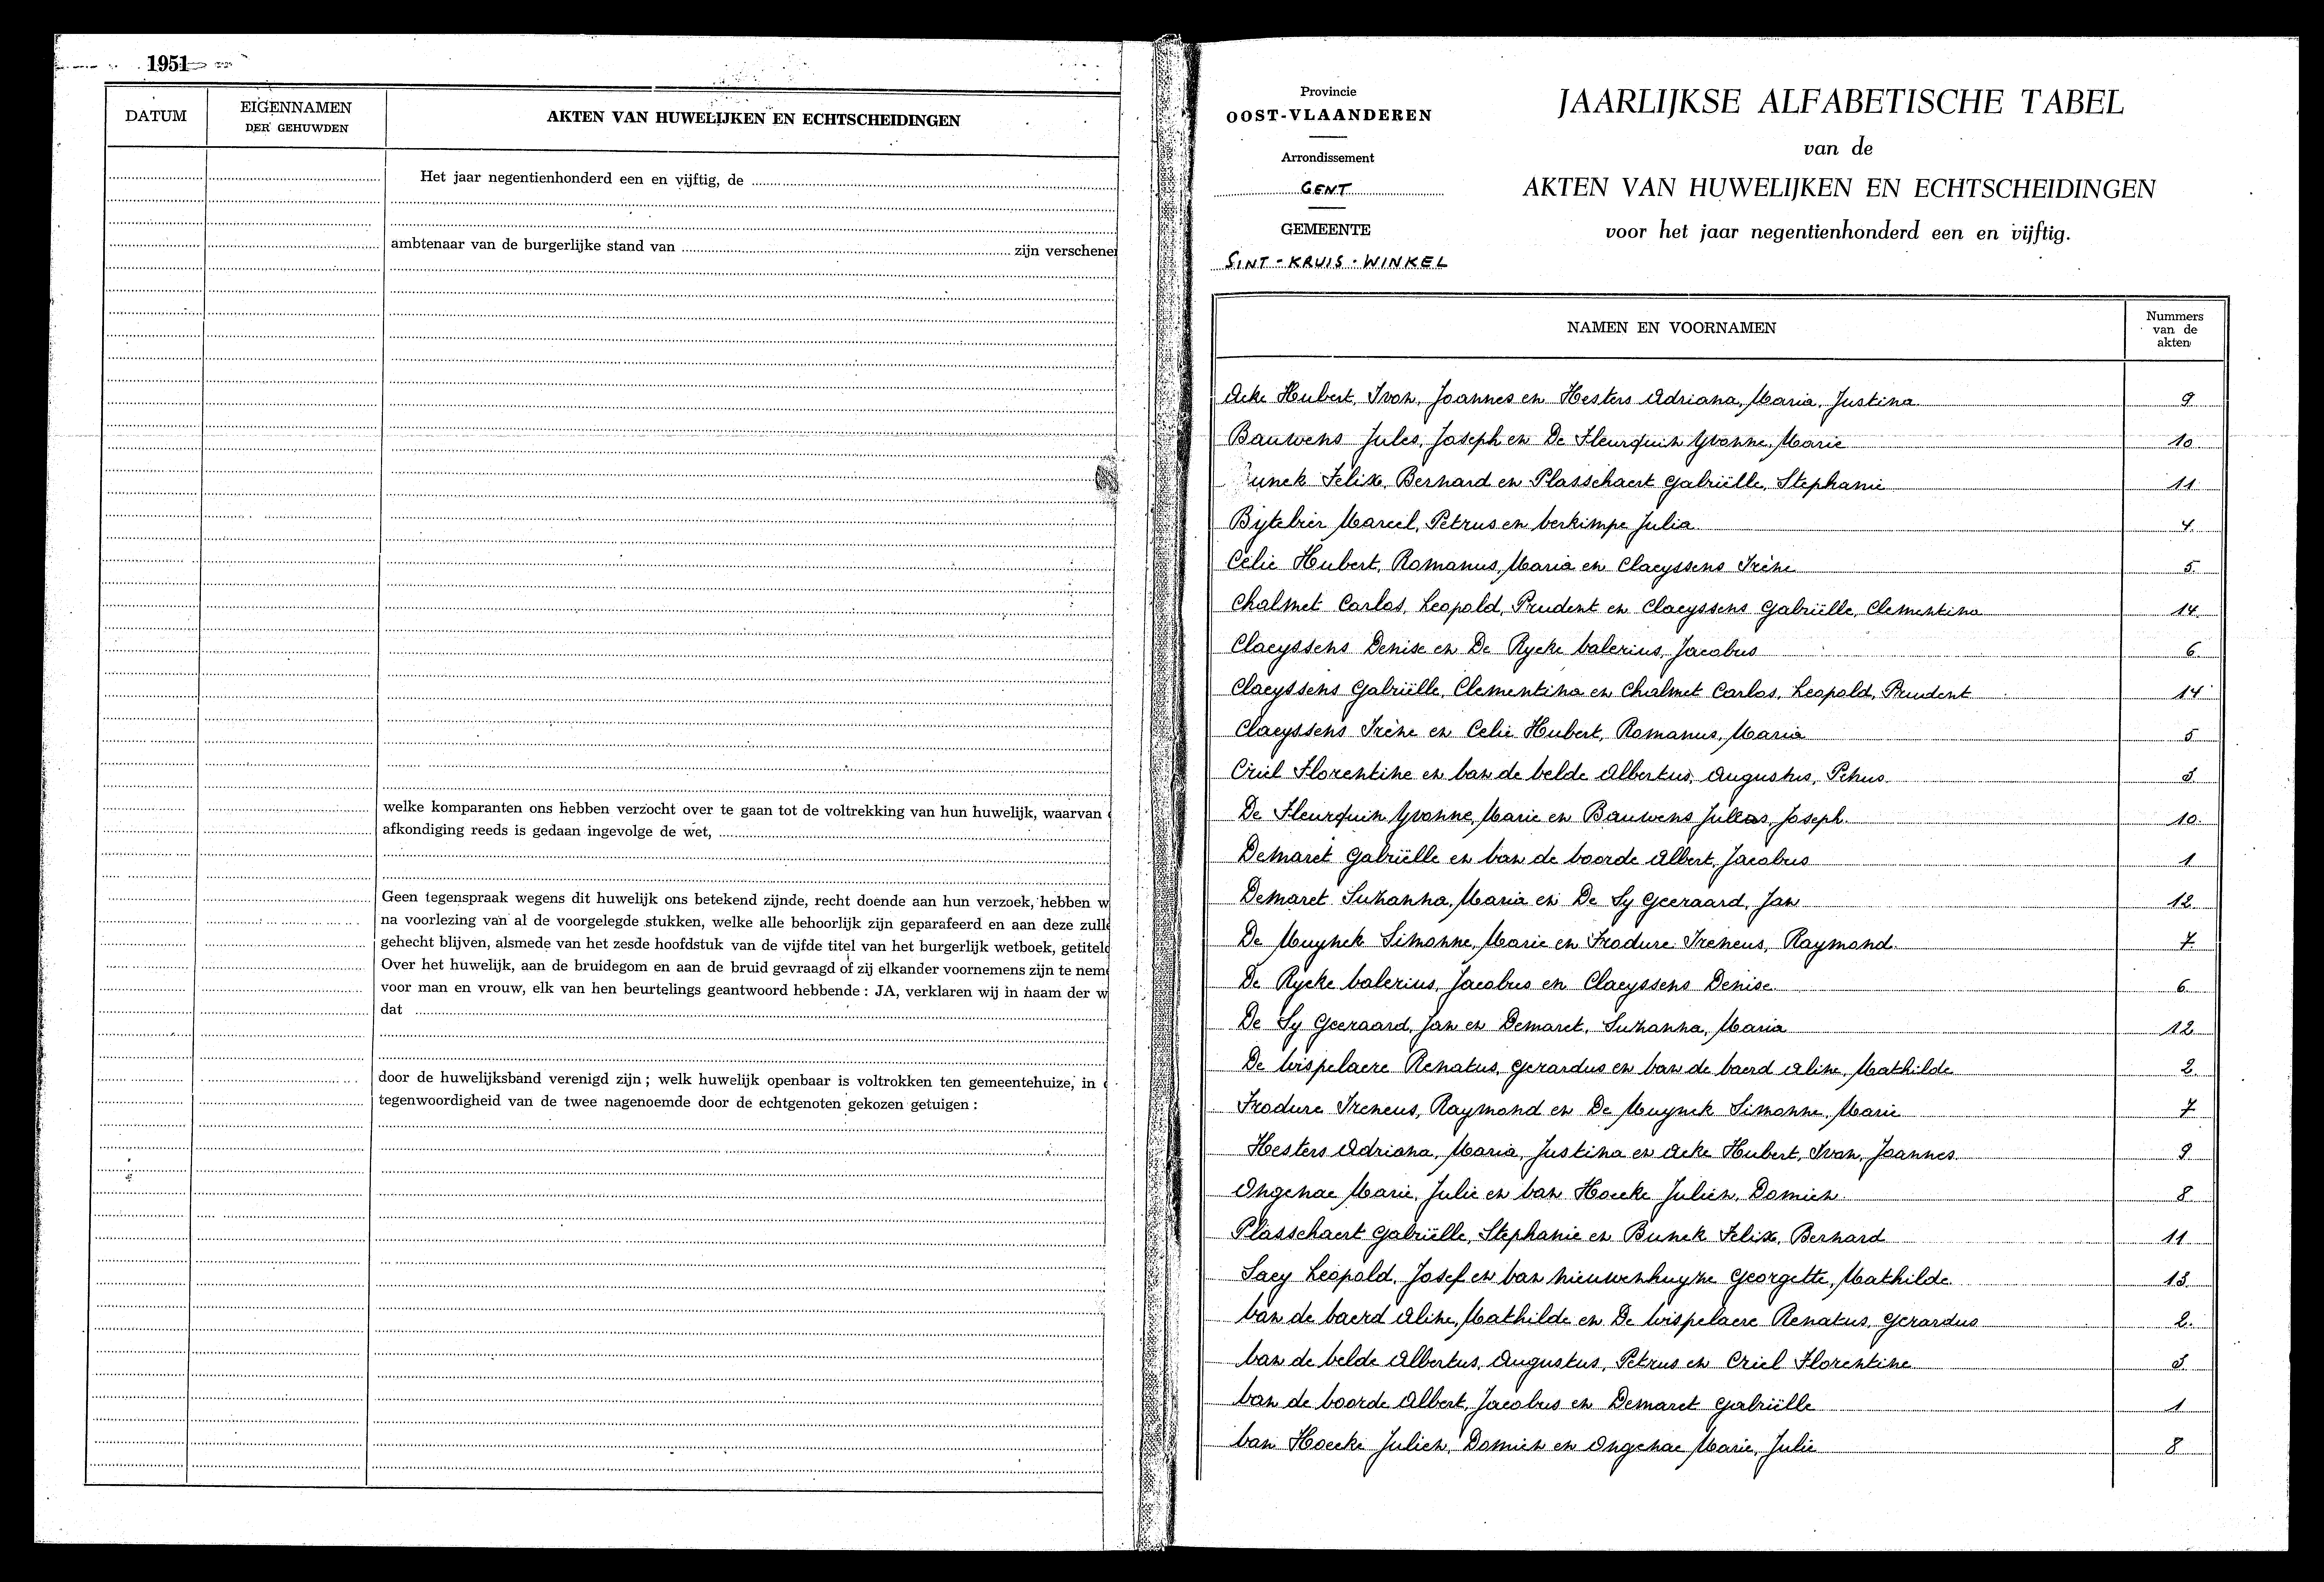 1951
DATUM
EIGENNAMEN
DER GEHUWDEN
AKTEN VAN HUWELIJKEN EN ECHTSCHEIDINGEN
Het jaar negentienhonderd een en vijftig, de
ambtenaar van de burgerlijke stand van zijn verschenen
welke komparanten ons hebben verzocht over te gaan tot de voltrekking van hun huwelijk, waarvan
afkondiging reeds is gedaan ingevolge de wet,
Geen tegenspraak wegens dit huwelijk ons betekend zijnde, recht doende aan hun verzoek, hebben w
na voorlezing van al de voorgelegde stukken, welke alle behoorlijk zijn geparafeerd en aan deze zulle
gehecht blijven, alsmede van het zesde hoofdstuk van de vijfde titel van het burgerlijk wetboek, getiteld
Over het huwelijk, aan de bruidegom en aan de bruid gevraagd of zij elkander voornemens zijn te neme
voor man en vrouw, elk van hen beurtelings geantwoord hebbende : JA, verklaren wij in naam der w
dat
door de huwelijksband verenigd zijn ; welk huwelijk openbaar is voltrokken ten gemeentehuize, in
tegenwoordigheid van de twee nagenoemde door de echtgenoten gekozen getuigen :
Provincie
OOST-VLAANDEREN
Arrondissement
GENT
GEMEENTE
SINT-KRUIS-WINKEL
JAARLIJKSE ALFABETISCHE TABEL
van de
AKTEN VAN HUWELIJKEN EN ECHTSCHEIDINGEN
voor het jaar negentienhonderd een en vijftig.
NAMEN EN VOORNAMEN
Nummers
van de
akten
Acke Hubert, Ivon, Joannes en Hesters Adriana, Maria, Justina 9
Bauwens Jules, Joseph en De Fleurquin Yvonne, Marie 10
Bunck Felix, Bernard en Plasschaert Gabriëlle, Stephanie 11
Bijtebier Marcel, Petrus en Verkimpe Julia 4.
Celie Hubert, Romanus, Maria en Claeyssens Irène 5.
Chalmet Carlos, Leopold, Prudent en Claeyssens Gabriëlle, Clementina 14.
Claeyssens Denise en De Rycke Valerius, Jacobus 6.
Claeyssens Gabriëlle, Clementina en Chalmet Carlos, Leopold, Prudent 14
Claeyssens Irène en Celie Hubert, Romanus, Maria 5
Criel Florentine en Van de Velde Albertus, Augustus, Petrus 3.
De Fleurquin Yvonne, Marie en Bauwens Jules, Joseph 10.
Demaret Gabriëlle en Van de Voorde Albert, Jacobus 1
Demaret Suzanna, Maria en De Sy Geeraard, Jan 12.
De Muynck Simonne, Marie en Frodure Ireneus, Raymond 7.
De Rycke Valerius, Jacobus en Claeyssens Denise 6.
De Sy Geeraard, Jan en Demaret, Suzanna, Maria 12
De Wispelaere Renatus, Gerardus en Van de Vaerd Aline, Mathilde 2.
Frodure Ireneus, Raymond en De Muynck Simonne, Marie 7
Hesters Adriana, Maria, Justina en Acke Hubert, Ivon, Joannes 9
Ongenae Marie, Julie en Van Hoecke Julien, Domien 8
Plasschaert Gabriëlle, Stephanie en Bunck Felix, Bernard 11
Saey Leopold, Josef en Van Nieuwenhuyze Georgette, Mathilde 13.
Van de Vaerd Aline, Mathilde en De Wispelaere Renatus, Gerardus 2.
Van de Velde Albertus, Augustus, Petrus en Criel Florentine 3.
Van de Voorde Albert, Jacobus en Demaret Gabriëlle 1
Van Hoecke Julien, Domien en Ongenae Marie, Julie 8